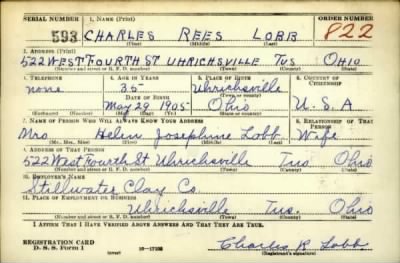 SERIAL NUMBER 1. NAME (Print) ORDER NUMBER
593 CHARLES REES LOBB 822
(First) (Middle) (Last)
2. ADDRESS (Print)
522 WEST FOURTH ST UHRICHSVILLE TUS OHIO
(Number and street or R. F. D. number) (Town) (County) (State)
3. TELEPHONE 4. AGE IN YEARS 5. PLACE OF BIRTH 6. COUNTRY OF CITIZENSHIP
none 35 Uhrichsville
DATE OF BIRTH (Town or county)
May 29 1905 Ohio U.S.A
(Mo.) (Day) (Yr.) (State or country)
7. NAME OF PERSON WHO WILL ALWAYS KNOW YOUR ADDRESS 8. RELATIONSHIP OF THAT PERSON
Mrs Helen Josephine Lobb Wife
(Mr., Mrs., Miss) (First) (Middle) (Last)
9. ADDRESS OF THAT PERSON
522 West Fourth St Uhrichsville Tus Ohio
(Number and street or R. F. D. number) (Town) (County) (State)
10. EMPLOYER'S NAME
Stillwater Clay Co.
11. PLACE OF EMPLOYMENT OR BUSINESS
Uhrichsville Tus. Ohio
(Number and street or R. F. D. number) (Town) (County) (State)
I AFFIRM THAT I HAVE VERIFIED ABOVE ANSWERS AND THAT THEY ARE TRUE.
REGISTRATION CARD
D. S. S. Form 1 (over) 16-17105 Charles R Lobb